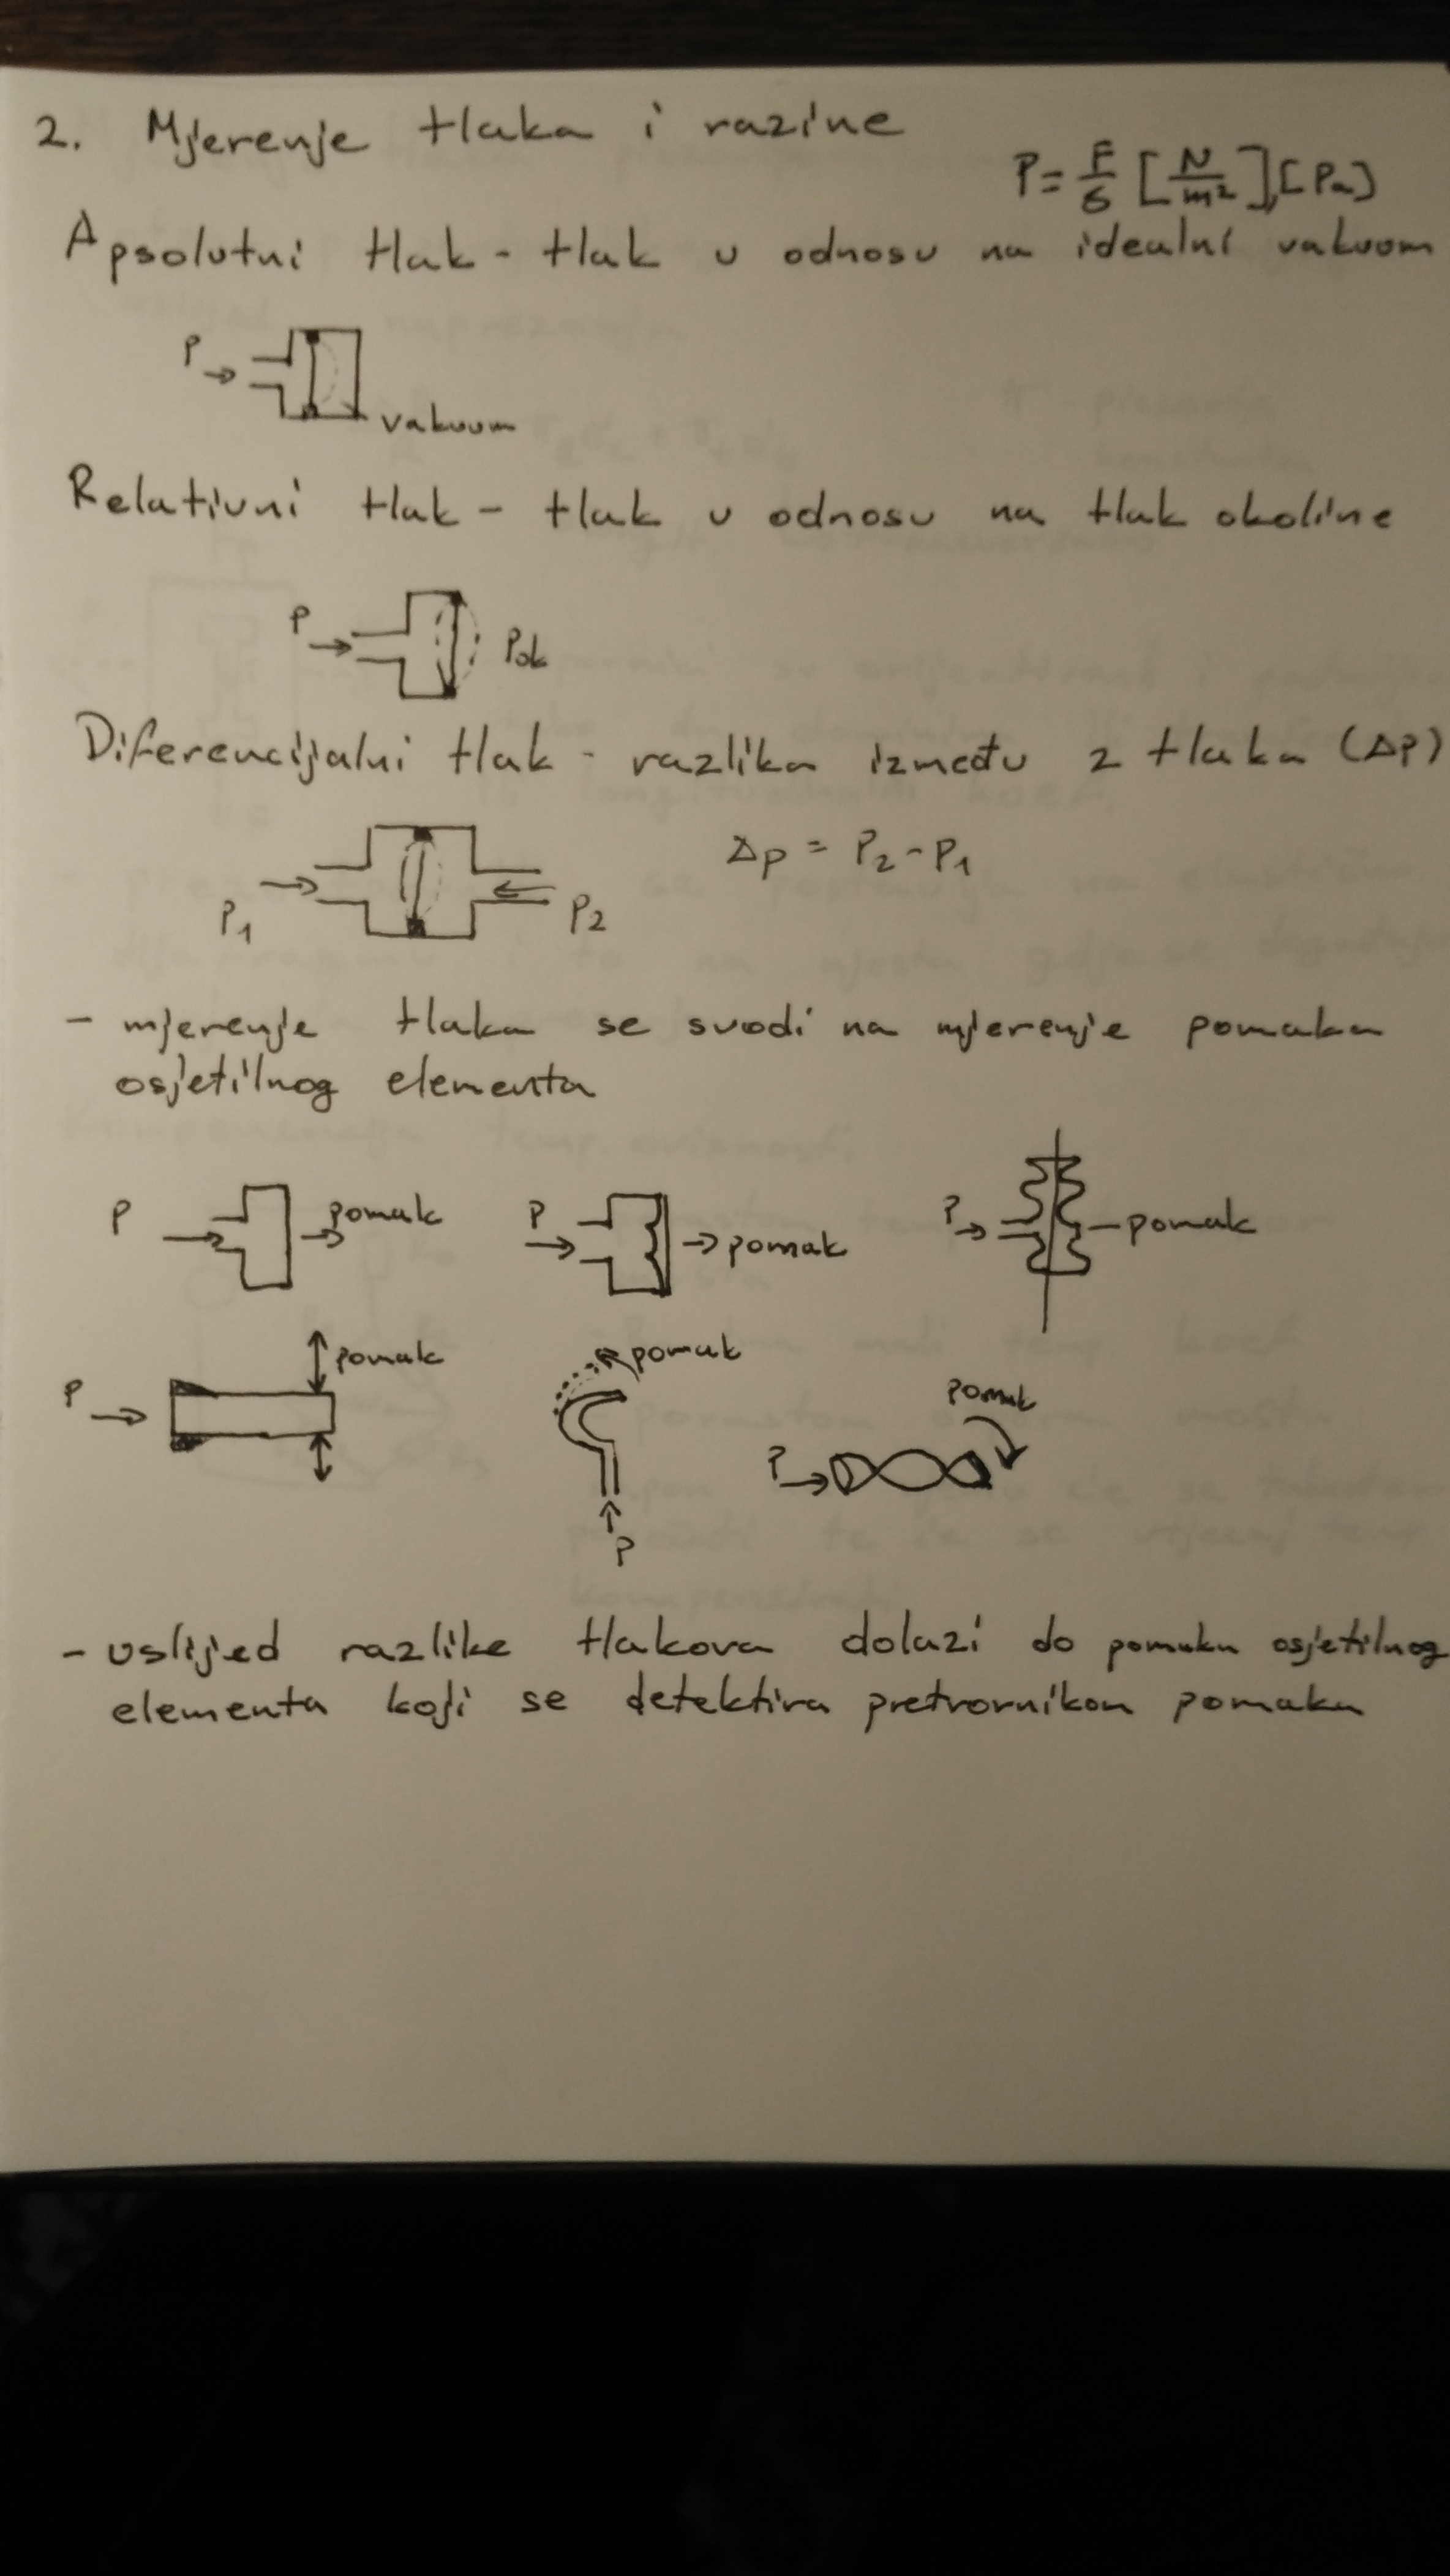 2. Mjerenje tlaka i razine
P = F/S [N/m²], [Pa]
Apsolutni tlak - tlak u odnosu na idealni vakuum
P
vakuum
Relativni tlak - tlak u odnosu na tlak okoline
P
Pok
Diferencijalni tlak - razlika između 2 tlaka (Δp)
Δp = P2 - P1
P1
P2
- mjerenje tlaka se svodi na mjerenje pomaka
osjetilnog elementa
P pomak P pomak P pomak
P pomak pomak P pomak
P
- uslijed razlike tlakova dolazi do pomaka osjetilnog
elementa koji se detektira pretvornikom pomaka